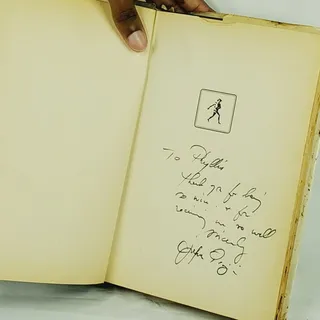 To Phyllis
thank you for being
so nice & for
receiving me so well
Sincerely